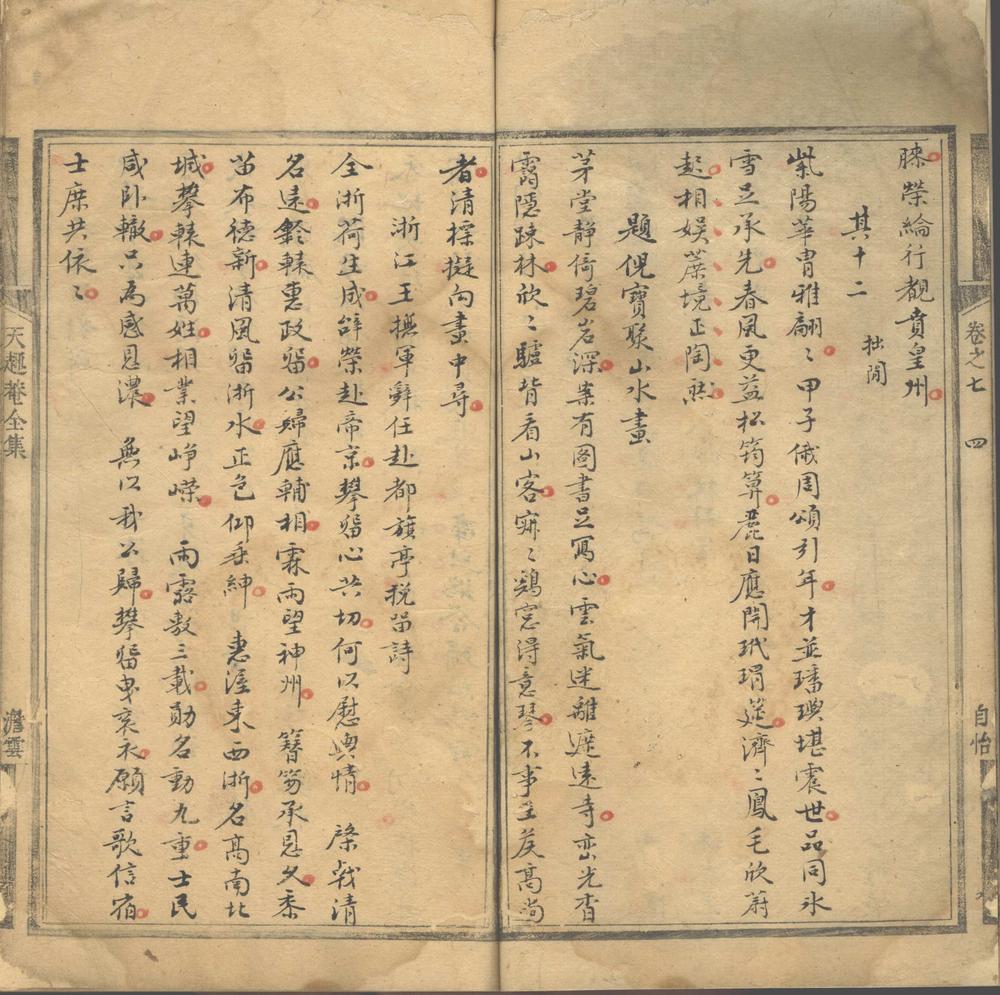 勝榮綸行觀賁皇州
其十二 拙閒
紫陽華冑雅翩〻甲子俄周頌引年才並璠璵堪震世品同冰
雪足承先春風更益松筠算麗日應開玳瑁筵濟〻鳳毛欣蔚
起相娛蔗境正陶然
題倪寶聚山水畫
茅堂靜倚碧岩深業有圖書足寫心雲氣迷離遮遠寺峦光杳
靄隱疎林欣〻驢背看山客寂〻鷄窓得意琴不事王侯高尚
者清標擬向畫中尋
浙江王撫軍辭任赴都旗亭稅留詩
全浙荷生成辭榮赴帝京攀留心共切何以慰輿情 棨戟清
名遠鈴轅惠政留公歸應輔相霖雨望神州 簪笏承恩久黍
苗布德新清風留浙水正色仰垂紳 惠澤東西浙名高南北
城攀轅連萬姓相業望崢嶸 雨露敷三載勛名動九重士民
咸卧轍只為感恩濃 無以我公歸攀留曳袞衣願言歌信宿
士庶共依〻
卷之七
四
自怡
天趣菴全集
澹雲